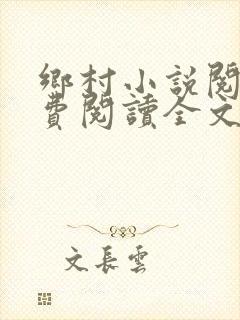 鄉村小說閱
費閱讀全文
文長雲